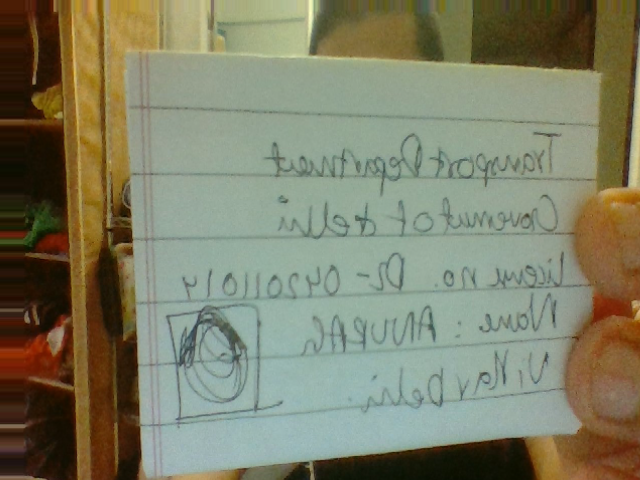 Transport Department
Goverment of delhi
License no. DL-042011014
Name: ANURAG
Vihar Delhi.